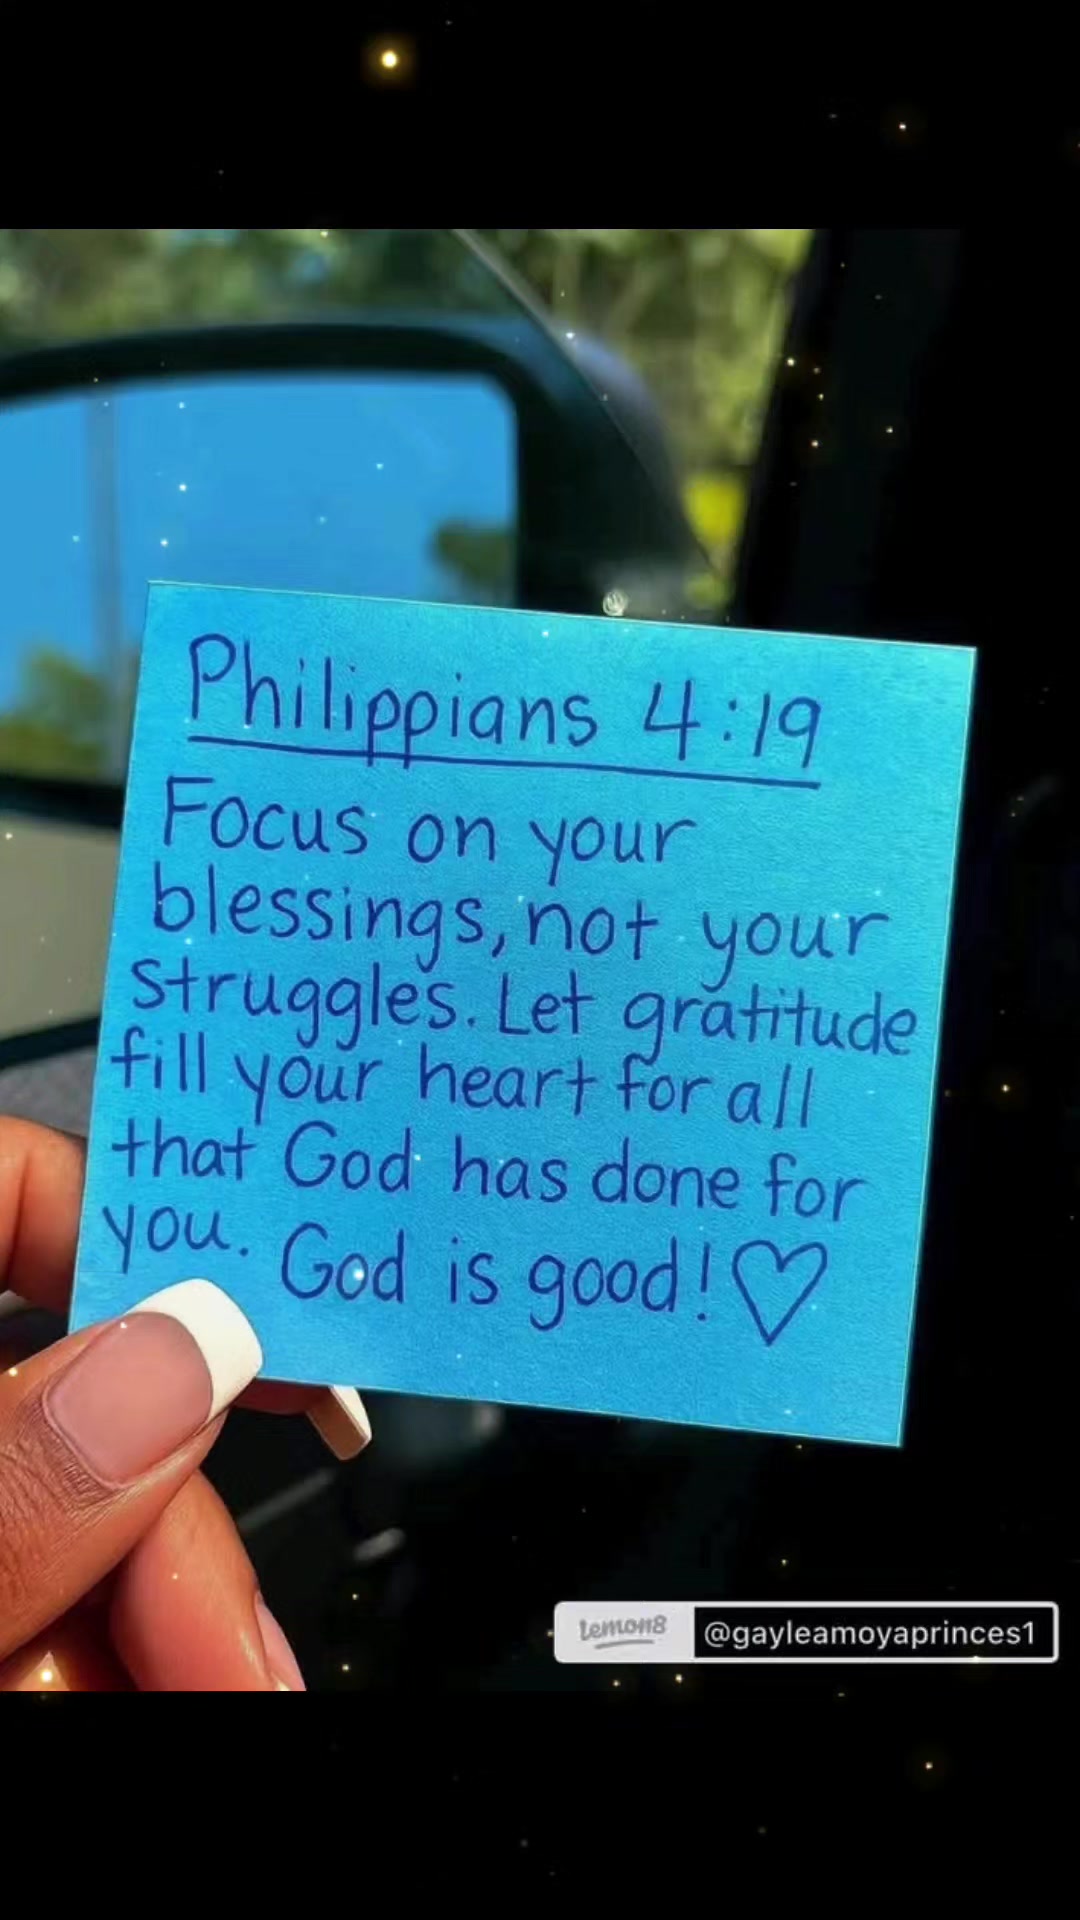 Philippians 4:19
Focus on your
blessings, not your
struggles. Let gratitude
fill your heart for all
that God has done for
you. God is good!♡
lemon8 @gayleamoyaprinces1